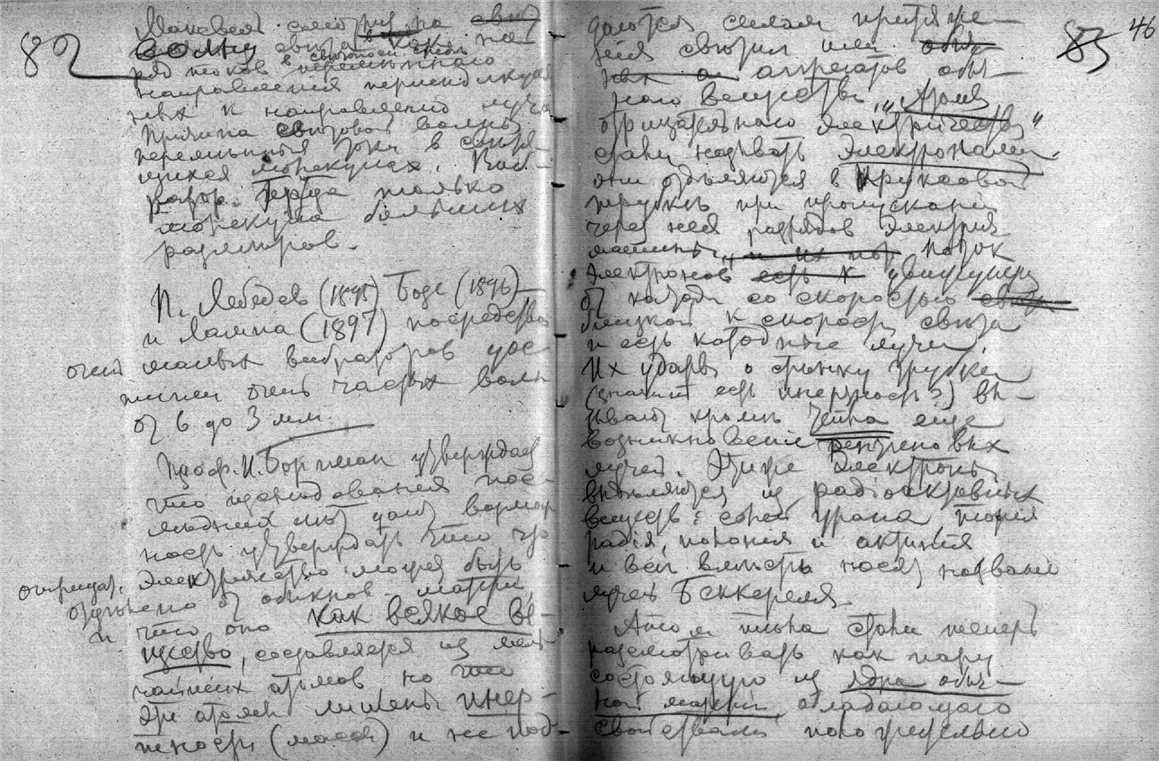 82
Максвелл смотрел на
волну света как на
ряд токов переменного
направления перпендикуляр
ных к направлению луча
Причина световой волны
переменные токи в светя-
щихся молекулах. Виб-
ратор Герца только
молекула больших
размеров.
П. Лебедев (1895) Бозе (1896)
и Лампа (1897) посредством
малых вибраторов
очень частых волн
от 6 до 3 мм.
Проф. И. Боргман утверждает
что исследования пос-
ледних лет дают возмож
ность утверждать что
отрицат. электричество может быть
отделено от обикнов. матерiи
и что оно как всякое ве-
щество, составляется из мель
чайших атомов но что
эти атомы лишены инер-
тности (массы) и не под-
46
83
даются силам притяже-
ния
агрегатов обы-
чного вещества. „Атомы
отрицательного электричества"
стали называть электронами.
они отделяются в Круксовой
трубке при пропускании
через нея разрядов электрич
машины. поток
электронов движущихся
от катода со скоростью
близкой к скорости света
и есть катодные лучи.
Их удары о стенку трубки
(значит есть инертность?) вы-
зывают кроме тепла еще
возникновение рентгеновых
лучей. Эти же электроны
выделяются из радiоактивных
веществ: солей урана тория
радiя, полония и актиния
и все вместе носят название
лучей Беккереля.
Атом тела стали теперь
рассматривать как пару
состоящую из ядра обыч-
ной матерiи, обладающаго
свойствами положительно